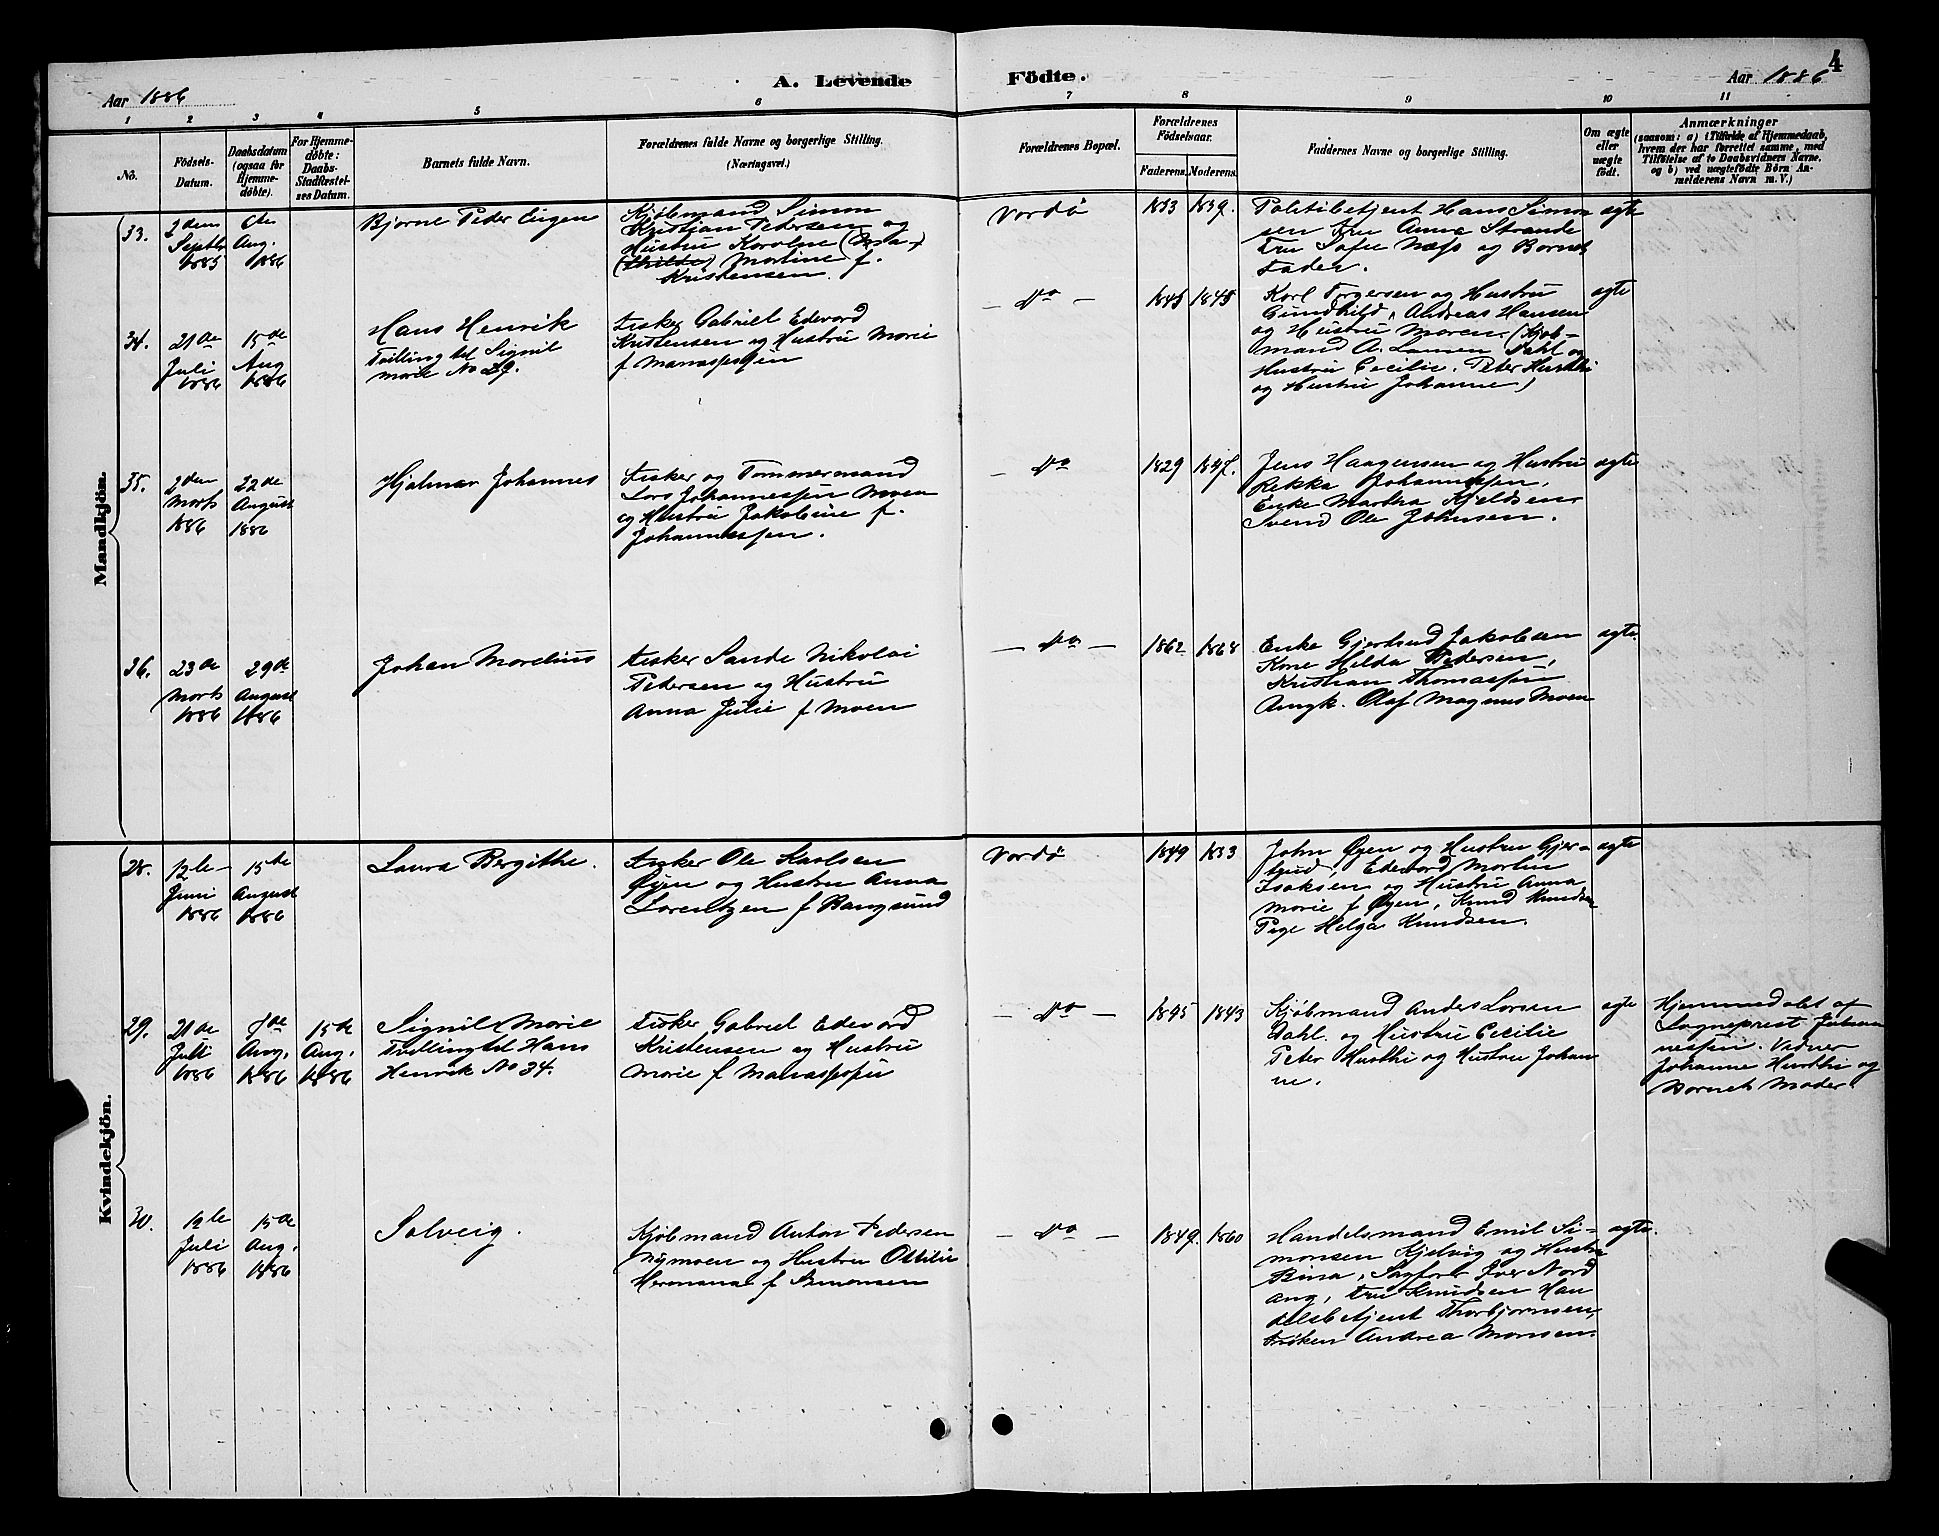 4
Aar 1886
A. Levende
Födte.
Aar 1886
1 2 3 4 5 6 7 8 9 10 11
No.
Födsels-
Datum.
Daabsdatum
(ogsaa for
Hjemme-
döbte).
For Hjemme-
døbte:
Daabs-
Stadfæstel-
ses Datum.
Barnets fulde Navn.
Forældrenes fulde Navne og borgerlige Stilling.
(Næringsvei.)
Forældrenes Bopæl.
Forældrenes
Födselsaar.
Faderens. Moderens.
Faddernes Navne og borgerlige Stilling.
Om ægte
eller
uægte
født.
Anmærkninger
(saasom: a) i Tilfælde af Hjemmedaab,
hvem der har forrettet samme, med
Tilføielse af to Daabsvidners Navne,
og b) ved uægtefødte Børn An-
melderens Navn m. V.)
Mandkjön.
33.
2den
Septb
1885
Aug.
1886
Bjarne Peder Eugen
Kjöbmand Simon
Kristian Pedersen og
Hustru
Martine f.
Kristensen
Vardö
1853 1859.
Politibetjent Hans Simon
sen Fru Anna Strande
Fru Sofie Næss og Barnets
Fader.
ægte
34.
21de
Juli
1886
15de
Aug
1886
Hans Henrik
Tvilling til Signil
marie No 29.
Fisker Gabriel Edvard
Kristensen og Hustru Marie
f Manassessen
— Do —
1845 1845
Karl Torgersen og Hustru
Gundhild, Andreas Hansen
og Hustru Maren (Kjøb-
mand A. Larsen Dahl og
Hustru Cecilie. Peter Husthi
og Hustru Johanne)
ægte
35.
2den
Marts
1886
22de
August
1886
Hjalmar Johannes
Fisker og Tømmermand
Lars Johannessen Moen
og Hustru Jakobine f.
Johannessen.
— Do
1829 1847.
Jens Haagensen og Hustru
Rekka Johannessen,
Enke Martha Kjeldsen
Svend Ole Johnsen.
ægte
36.
23de
Marts
1886
29de
August
1886
Johan Marelius
Fisker Sande Nikolai
Pedersen og Hustru
Anna Julie f Moen
— Do —
1862 1868
Enke Gjertrud Jakobsen
Kone Hilda Pedersen,
Kristian Thomassen
Ungk. Olaf Magnus Moen
ægte.
Kvindekjön.
28.
12te
Juni
1886
15de
August
1886
Laura Bergithe.
Fisker Ole Karlsen
Øyen og Hustru Anna
Lorentzen f Bangsund
Vardö
1849 1853
John Øyen og Hustru Gjer-
trud, Edvard Martin
Isaksen og Hustru Anna
Marie f Øyen, Knud Knudsen
Pige Helga Knudsen.
ægte
29.
21de
Juli
1886
1de
Aug.
1886
15de
Aug.
1886
Signil Marie
Tvilling til Hans
Henrik No 34.
Fisker Gabriel Edvard
Kristensen og Hustru
Marie f Manassessen
— Do —
1845 1843
Kjöbmand Anders Larsen
Dahl. og Hustru Cecilie
Peter Husthi og Hustru Johan
ne.
ægte
Hjemmedøbt af
Sogneprest Johan
nessen. Vidner
Johanne Husthi og
Barnets Moder.
30.
12te
Juli
1886
15de
Aug.
1886
Solveig.
Kjöbmand Anton Pedersen
Nymoen og Hustru Ottilie
Hermana f Simonsen
— Do —
1849. 1860
Handelsmand Emil Si-
monsen Kjelvig og Hustru
Bina, Sagfører Iver Nord
ang, Fru Knudsen Han
delsbetjent Thorbjørnsen,
Frøken Andrea Monsen.
ægte.